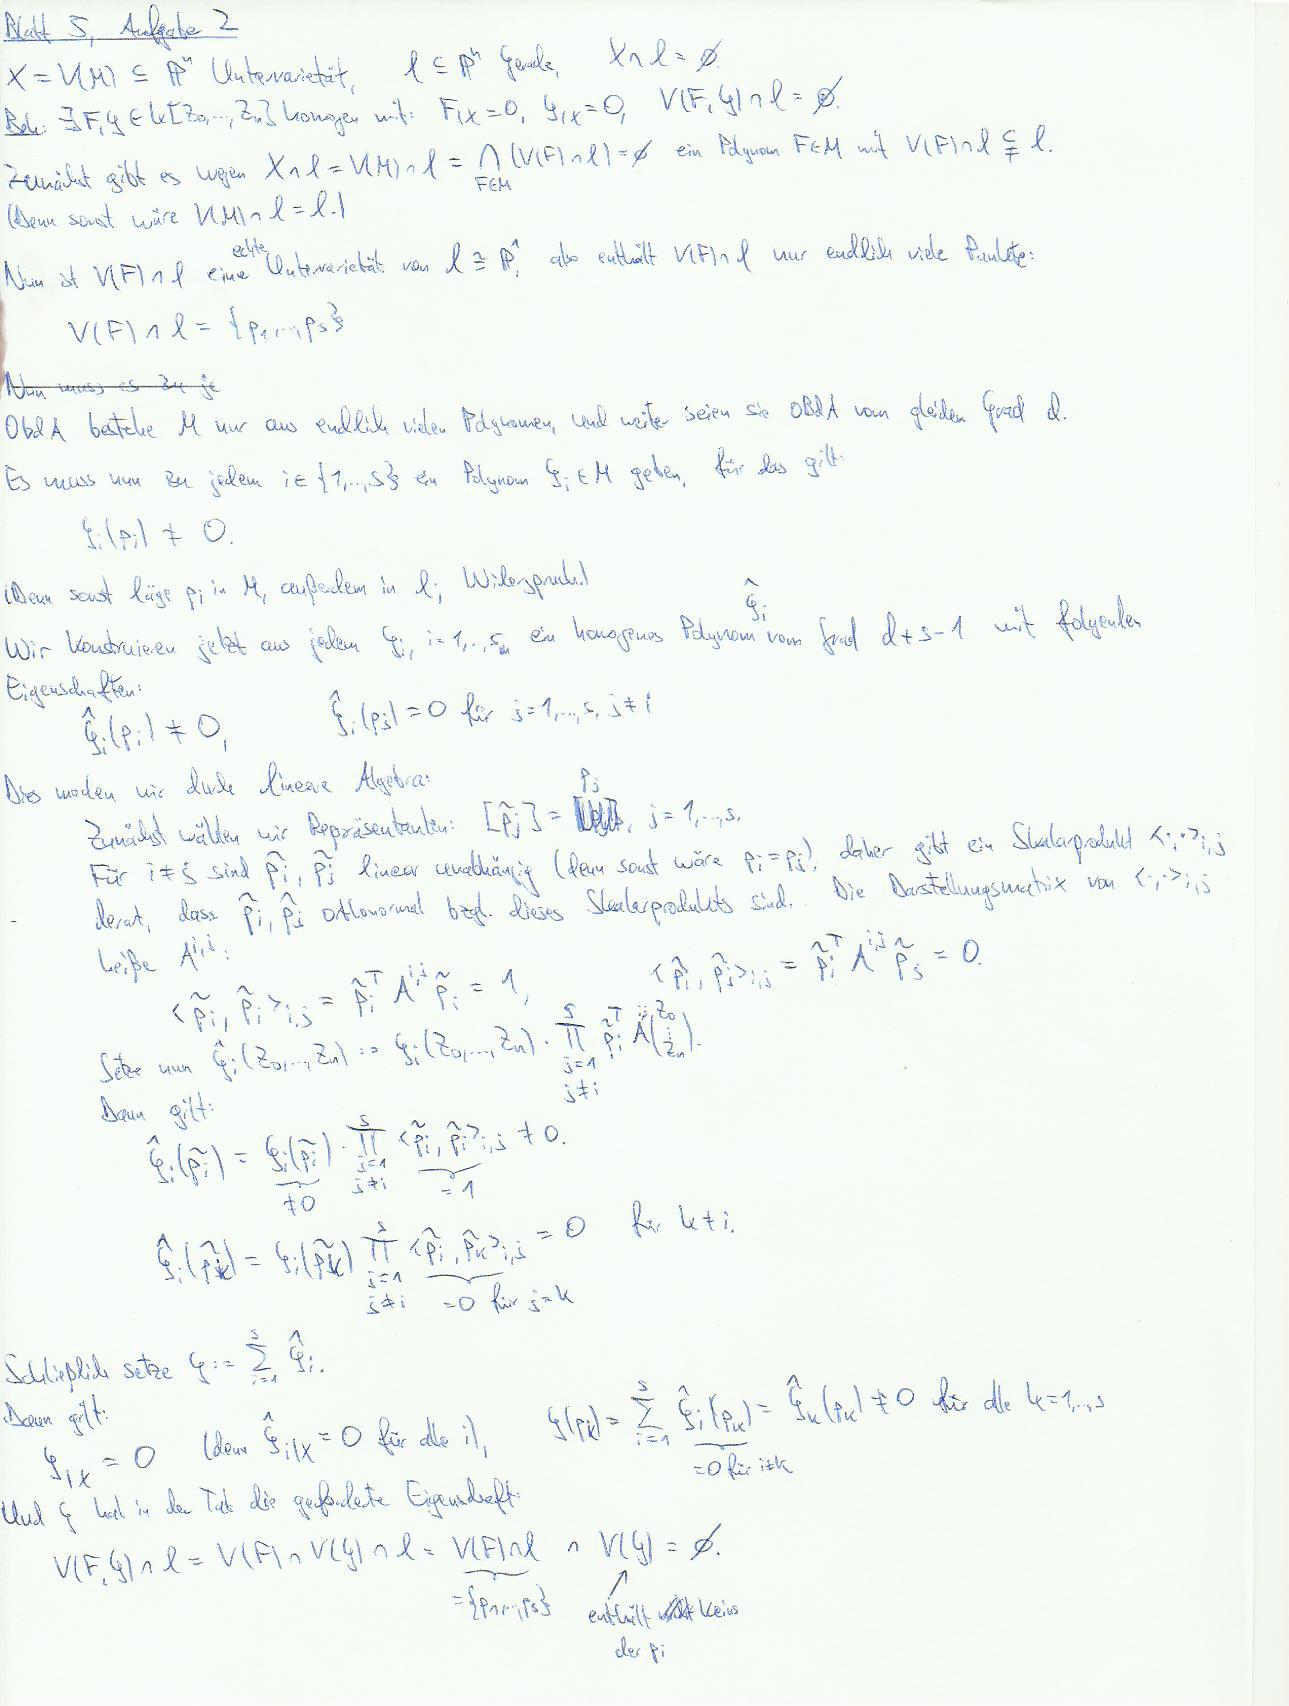 Blatt 5, Aufgabe 2
X = V(M) ⊆ ℙⁿ Untervarietät, l ⊆ ℙⁿ Gerade, X ∩ l = ∅.
Beh: ∃ F, G ∈ k[Z₀,…,Zₙ] homogen mit: F|X = 0, G|X = 0, V(F,G) ∩ l = ∅.
Zunächst gibt es wegen X ∩ l = V(M) ∩ l = ⋂_{F∈M} (V(F) ∩ l) = ∅ ein Polynom F ∈ M mit V(F) ∩ l ⊊ l.
(Denn sonst wäre V(M) ∩ l = l.)
Nun ist V(F) ∩ l eine echte Untervarietät von l ≅ ℙ¹, also enthält V(F) ∩ l nur endlich viele Punkte:
V(F) ∩ l = {p₁,…,pₛ}
Nun muss es zu je
OBdA bestehe M nur aus endlich vielen Polynomen, und weiter seien sie OBdA vom gleichen Grad d.
Es muss nun zu jedem i ∈ {1,…,s} ein Polynom Gᵢ ∈ M geben, für das gilt:
Gᵢ(pᵢ) ≠ 0.
(Denn sonst läge pᵢ in M, außerdem in l; Widerspruch.)
Wir konstruieren jetzt aus jedem Gᵢ, i=1,…,s, ein homogenes Polynom Ĝᵢ vom Grad d+s-1 mit folgenden
Eigenschaften:
Ĝᵢ(pᵢ) ≠ 0, Ĝᵢ(pⱼ) = 0 für j=1,…,s, j≠i
Dies machen wir durch lineare Algebra:
Zunächst wählen wir Repräsentanten: [p̃ⱼ] = pⱼ, j=1,…,s.
Für i≠j sind p̃ᵢ, p̃ⱼ linear unabhängig (denn sonst wäre pᵢ=pⱼ), daher gibt ein Skalarprodukt <·,·>ᵢ,ⱼ
derart, dass p̃ᵢ, p̃ⱼ orthonormal bzgl. dieses Skalarprodukts sind. Die Darstellungsmatrix von <·,·>ᵢ,ⱼ
heiße A^{i,j}:
<p̃ᵢ, p̃ᵢ>ᵢ,ⱼ = p̃ᵢᵀ A^{i,j} p̃ᵢ = 1, <p̃ᵢ, p̃ⱼ>ᵢ,ⱼ = p̃ᵢᵀ A^{i,j} p̃ⱼ = 0.
Setze nun Ĝᵢ(Z₀,…,Zₙ) := Gᵢ(Z₀,…,Zₙ) · ∏_{j=1, j≠i}^{s} p̃ᵢᵀ A^{i,j} (Z₀ ⋮ Zₙ).
Dann gilt:
Ĝᵢ(p̃ᵢ) = Gᵢ(p̃ᵢ) · ∏_{j=1, j≠i}^{s} <p̃ᵢ, p̃ᵢ>ᵢ,ⱼ ≠ 0.
≠0 =1
Ĝᵢ(p̃ₖ) = Gᵢ(p̃ₖ) ∏_{j=1, j≠i}^{s} <p̃ᵢ, p̃ₖ>ᵢ,ⱼ = 0 für k≠i.
=0 für j=k
Schließlich setze G := ∑_{i=1}^{s} Ĝᵢ.
Dann gilt:
G|X = 0 (denn Ĝᵢ|X = 0 für alle i), G(pₖ) = ∑_{i=1}^{s} Ĝᵢ(pₖ) = Ĝₖ(pₖ) ≠ 0 für alle k=1,…,s
=0 für i≠k
Und G hat in der Tat die geforderte Eigenschaft:
V(F,G) ∩ l = V(F) ∩ V(G) ∩ l = V(F) ∩ l ∩ V(G) = ∅.
={p₁,…,pₛ} enthält keins
der pᵢ